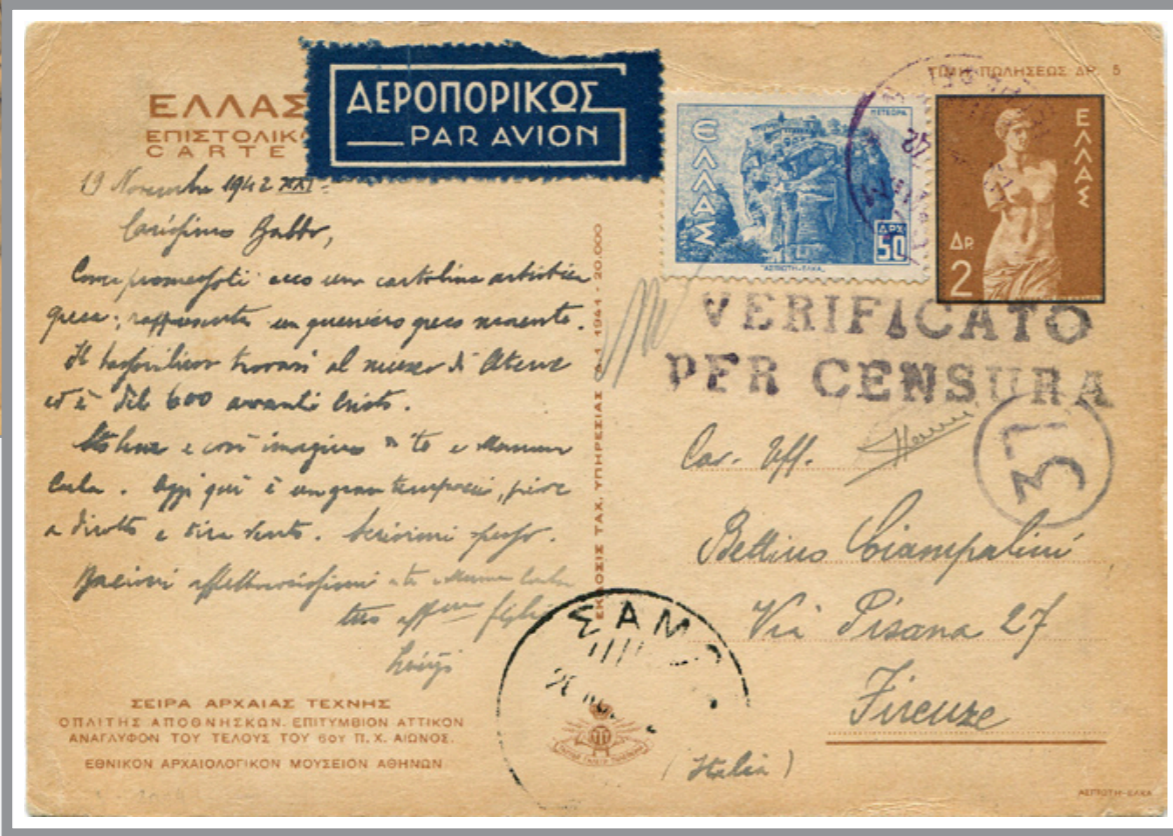 ΕΛΛΑΣ
ΕΠΙΣΤΟΛΙΚ
CARTE
ΑΕΡΟΠΟΡΙΚΩΣ
PAR AVION
ΤΙΜΗ ΠΩΛΗΣΕΩΣ ΔΡ. 5
ΜΕΤΕΩΡΑ
ΕΛΛΑΣ
ΔΡΧ
50
ΑΣΠΙΩΤΗ-ΕΛΚΑ
ΕΛΛΑΣ
ΔΡ.
2
19 Novembre 1942 XXI=
Carissimo Babbo,
Come promessoti ecco una cartolina artistica
greca; rappresenta un guerriero greco morente.
Il bassorilievo trovasi al museo di Atene
ed è del 600 avanti Cristo.
Sto bene e così imagino di te e Mamma
Carla. Oggi qui è un gran tempaccio, piove
a dirotto e tira vento. Scrivimi spesso.
Bacioni affettuosissimi a te e Mamma Carla
tuo aff.mo figlio
Luigi
ΕΚΔΟΣΙΣ ΤΑΧ. ΥΠΗΡΕΣΙΑΣ 1941 - 20.000
VERIFICATO
PER CENSURA
37
Cav. Uff.
Bettino Ciampalini
Via Pisana 27
Firenze
(Italia)
ΣΑΜΟ
ΣΕΙΡΑ ΑΡΧΑΙΑΣ ΤΕΧΝΗΣ
ΟΠΛΙΤΗΣ ΑΠΟΘΝΗΣΚΩΝ. ΕΠΙΤΥΜΒΙΟΝ ΑΤΤΙΚΟΝ
ΑΝΑΓΛΥΦΟΝ ΤΟΥ ΤΕΛΟΥΣ ΤΟΥ 6ου Π. Χ. ΑΙΩΝΟΣ.
ΕΘΝΙΚΟΝ ΑΡΧΑΙΟΛΟΓΙΚΟΝ ΜΟΥΣΕΙΟΝ ΑΘΗΝΩΝ
ΑΣΠΙΩΤΗ-ΕΛΚΑ